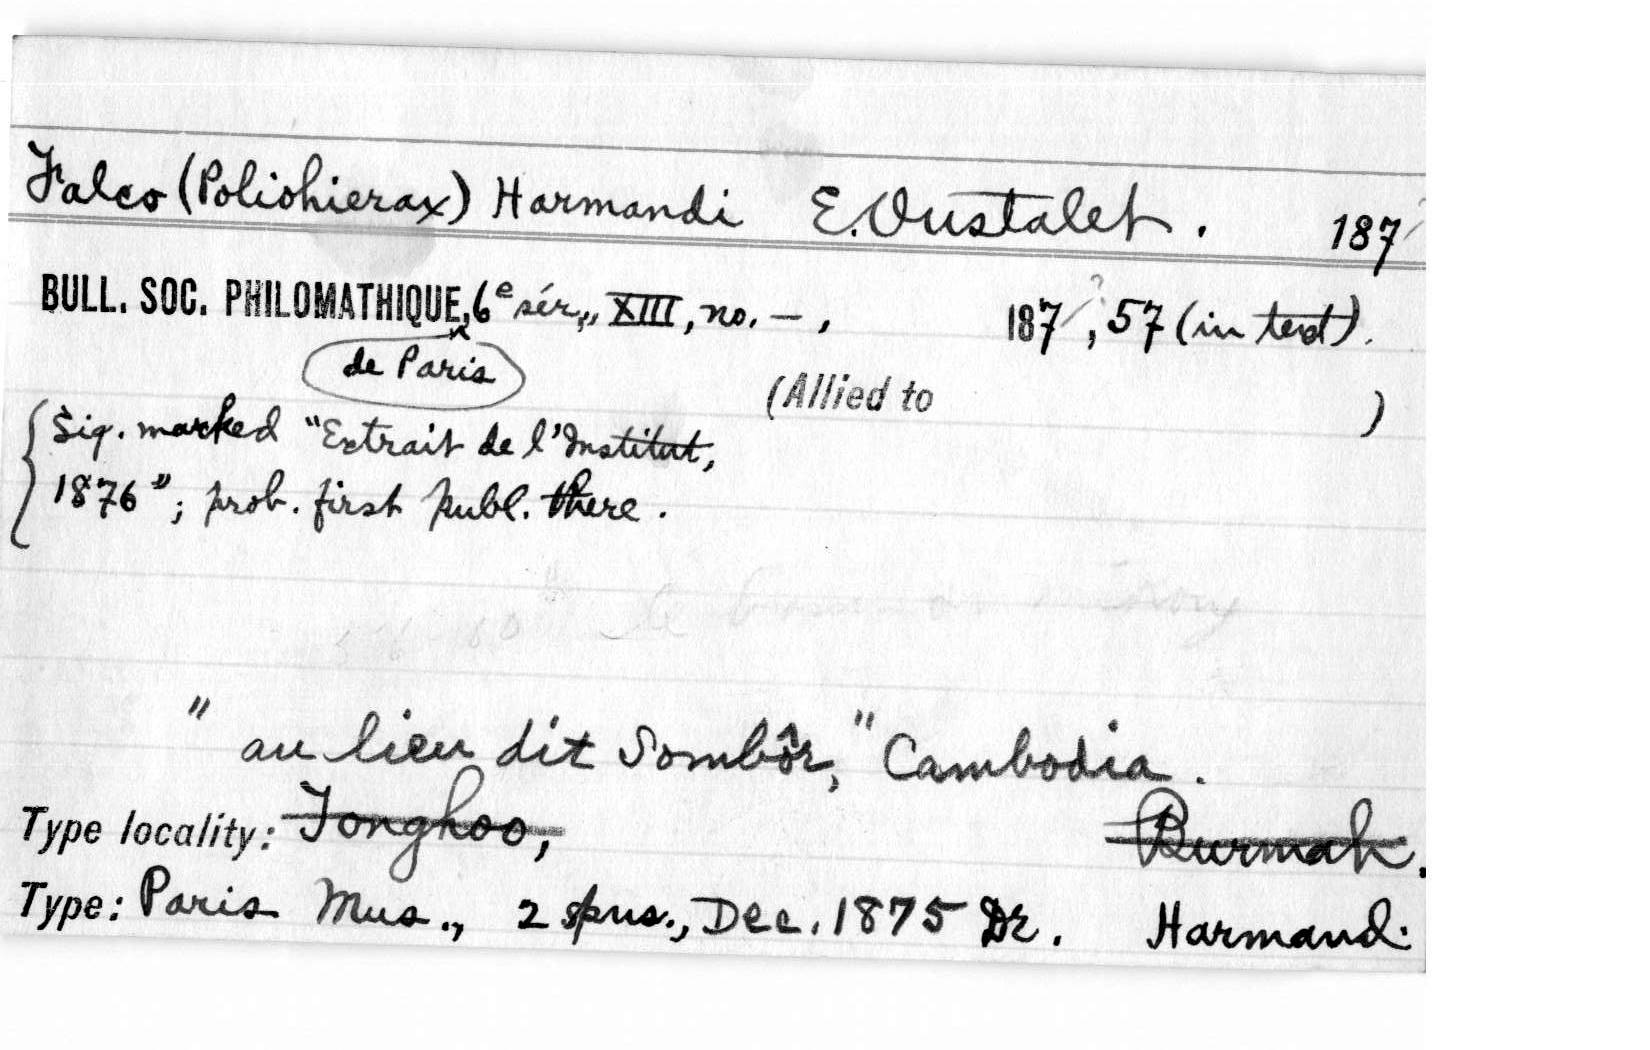 Falco (Poliohierax) Harmandi E. Oustalet. 187
BULL. SOC. PHILOMATHIQUE, 6e sér., XIII, no. –, 187?, 57 (in text).
de Paris
(Allied to )
Sig. marked "Extrait de l'Institut,
1876"; prob. first publ. there.
"au lieu dit Sombôr," Cambodia.
Type locality: Tonghoo, Burmah.
Type: Paris Mus., 2 spns., Dec. 1875 Dr. Harmand.